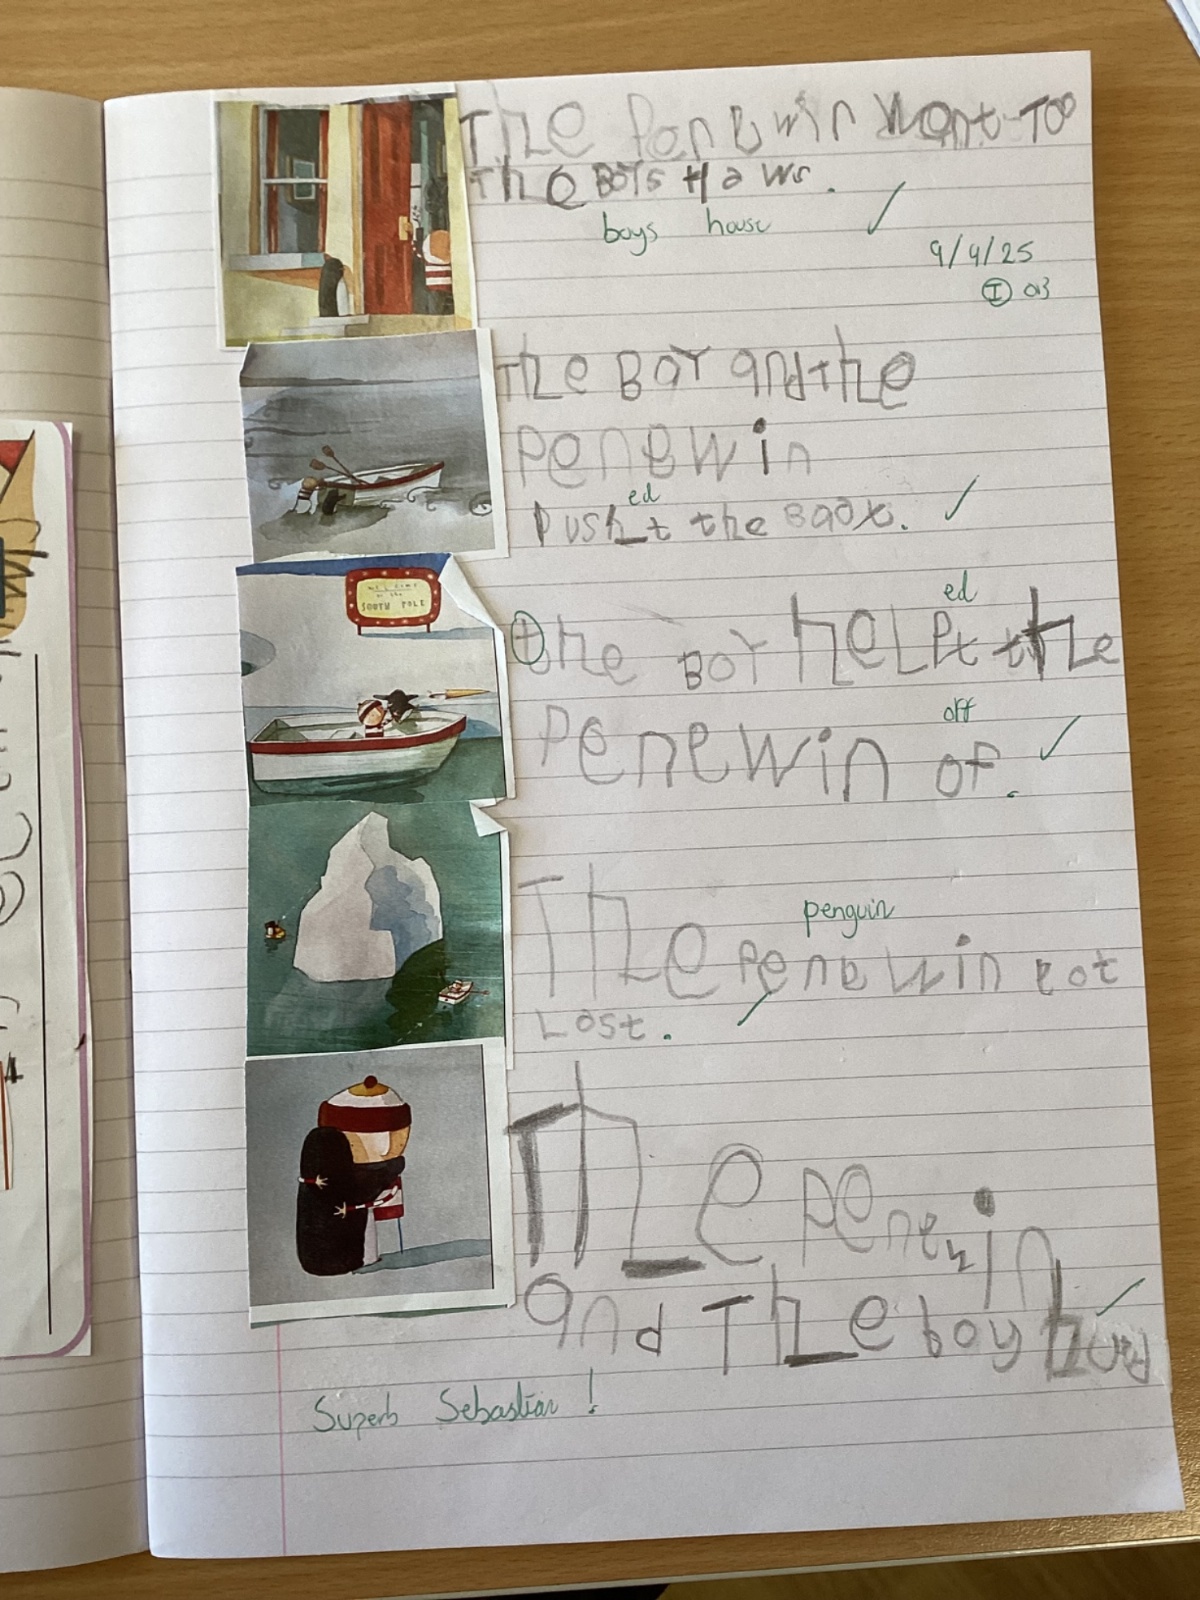 The Penewin Went Too
the BoYs Haws.
boys house
9/4/25
I
The BoY and the
penewin
ed
Pusht the Baot.
WELCOME
to the
SOUTH POLE
ed
the BoY heLPt the
off
Penewin of.
The penewin eot
penguin
Lost.
The penewin
and The boy hued
Superb Sebastian!